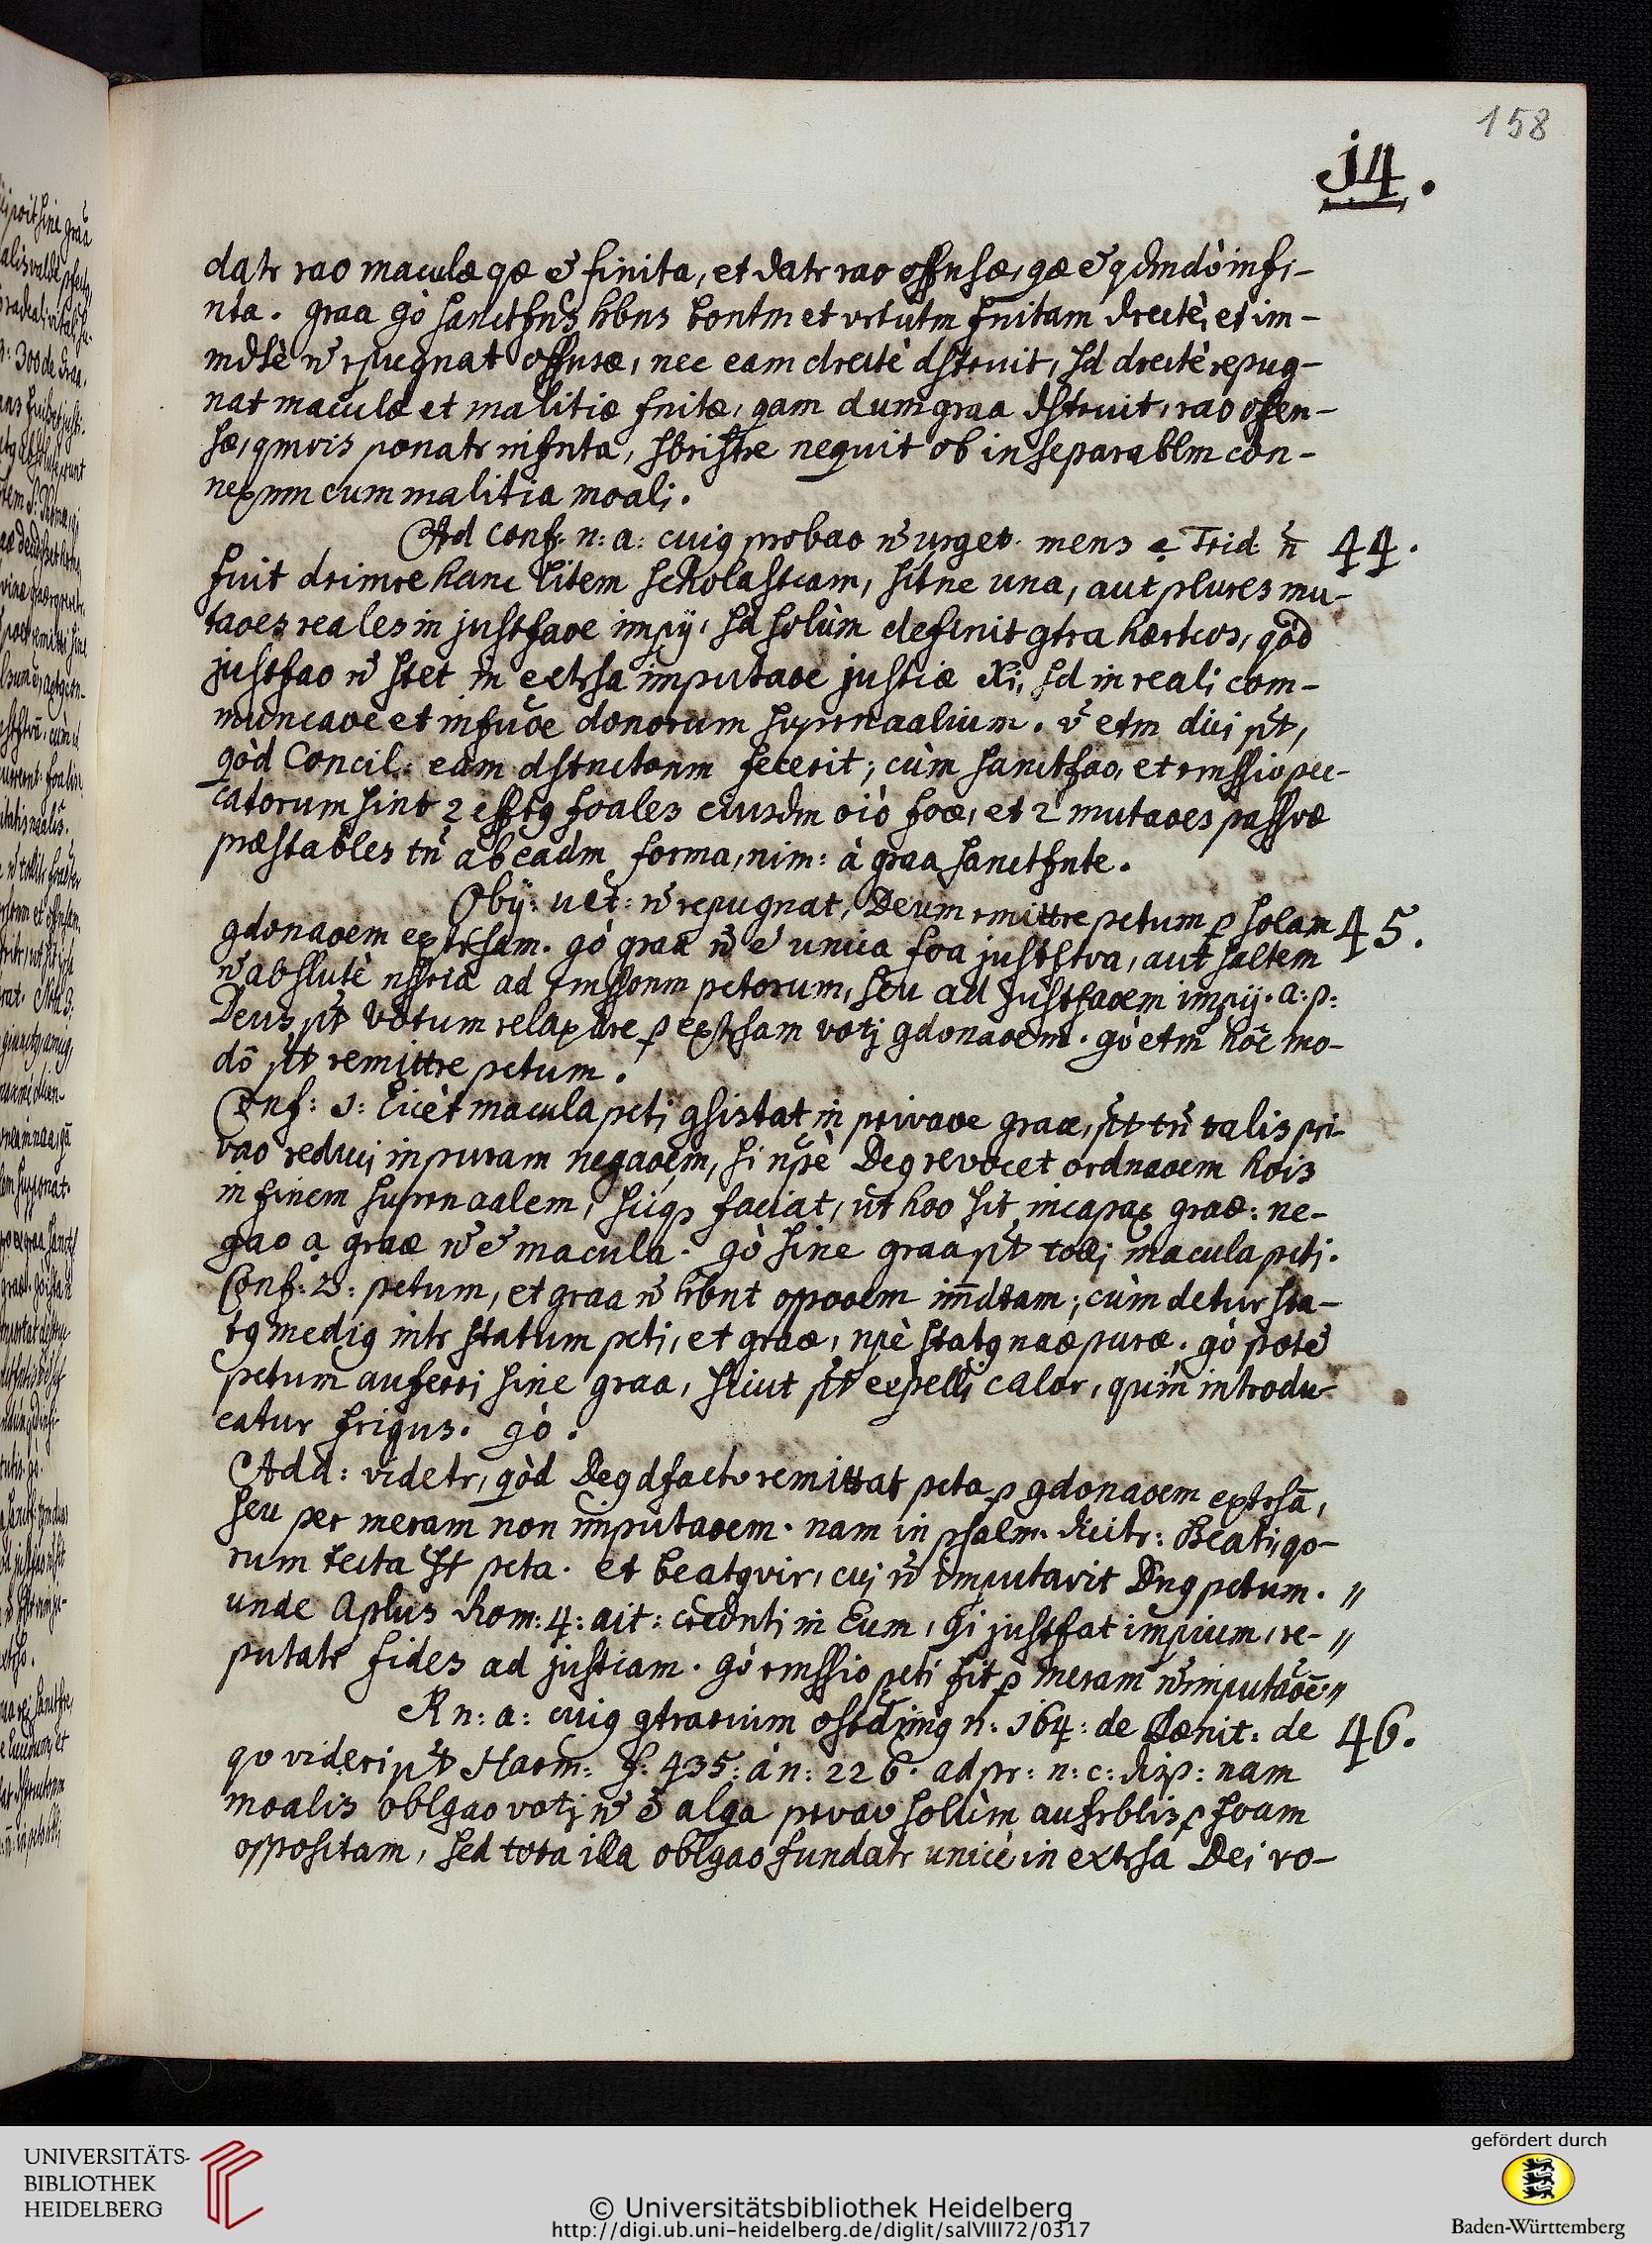 158
j4.
datr rao maculæ qæ ē finita, et datr rao offnsæ, qæ ē qdmdò infi-
nta. graa gò sanctfns hbns bontm et vrtutm fnitam drectè, et im-
mdtè n̄ rpugnat offnsæ, nec eam drectè dstruit, sd drectè repug-
nat maculæ et malitiæ fnitæ, qam dum graa dstruit, rao offen-
sæ, qmvis ponatr infnta, sbsistre nequit ob inseparablm con-
nexnm cum malitia moali.
Ad Conf. n: a: cuig probao n̄ urget. mens Trid. n̄ 44.
fuit drimre hanc litem scholasticam, sitne una, aut plures mu-
taoes reales in justfaoe impij, sd solùm definit gtra hærtcos, qòd
justfao n̄ stet in extrsa imputaoe justiæ Xi, sd in reali com-
muncaoe et infuoe donorum suprnaalium. etm dici pt,
qòd Concil: eam dstnctonm fecerit; cùm sanctfao, et rmssio pec-
catorum sint 2 efftg foales eiusdm oiò foæ, et 2 mutaoes passvæ
præstables tn̄ ab eadm forma, nim: à graa sanctfnte.
Obij: uet: n̄ repugnat, Deum rmittre petum p solam 45.
gdonaoem extrsam. gò graa n̄ ē unica foa justftva, aut saltem
n̄ abslutè nssria ad rmssonm petorum, seu ad justfaoem impij. a: p:
Deus pt votum relaxare p extrsam votj gdonaoem. gò etm hôc mo-
dô pt remittre petum.
Conf: 1: licèt macula peti gsistat in privaoe graæ, pt tn̄ talis pri-
vao reduci in puram negaoem, si npè Deg revocet ordnaoem hois
in finem suprnaalem, sicq faciat, ut hoo sit incapax graæ: ne-
gao a graæ n̄ ē macula. gò sine graa pt tolli macula peti.
Conf: 2: petum, et graa n̄ hbnt oppooem im̄dtam; cùm detur sta-
tg medig intr statum peti, et graæ, npè statg naæ puræ. gò potē
petum auferri sine graa, sicut pt expelli calor, quin introdu-
catur frigus. gò:
Add: videtr, qòd Deg dfacto remittat peta p gdonaoem extrsā,
seu per meram non imputaoem. nam in psalm. dicitr: Beati, qo-
rum tecta st peta. et beatg vir, cuj n̄ imputavit Dng petum. "
unde Aplus Rom: 4: ait: credntj in Eum, qi justfat impium, re- "
putatr fides ad justiam. gò rmssio peti fit p meram n̄ imputaoē "
R n: a: cuig gtrarium ostdimg n: 164: de Pœnit: de 46.
qo videri pt Harm: f: 435: à n: 226. ad pr: n: c: disp: nam
moalis oblgao votj n̄ ē alga prvao solùm aufrblis p foam
oppositam, sed tota illa oblgao fundatr unicè in extrsa Dei vo-
UNIVERSITÄTS-
BIBLIOTHEK
HEIDELBERG
© Universitätsbibliothek Heidelberg
http://digi.ub.uni-heidelberg.de/diglit/salVIII72/0317
gefördert durch
Baden-Württemberg